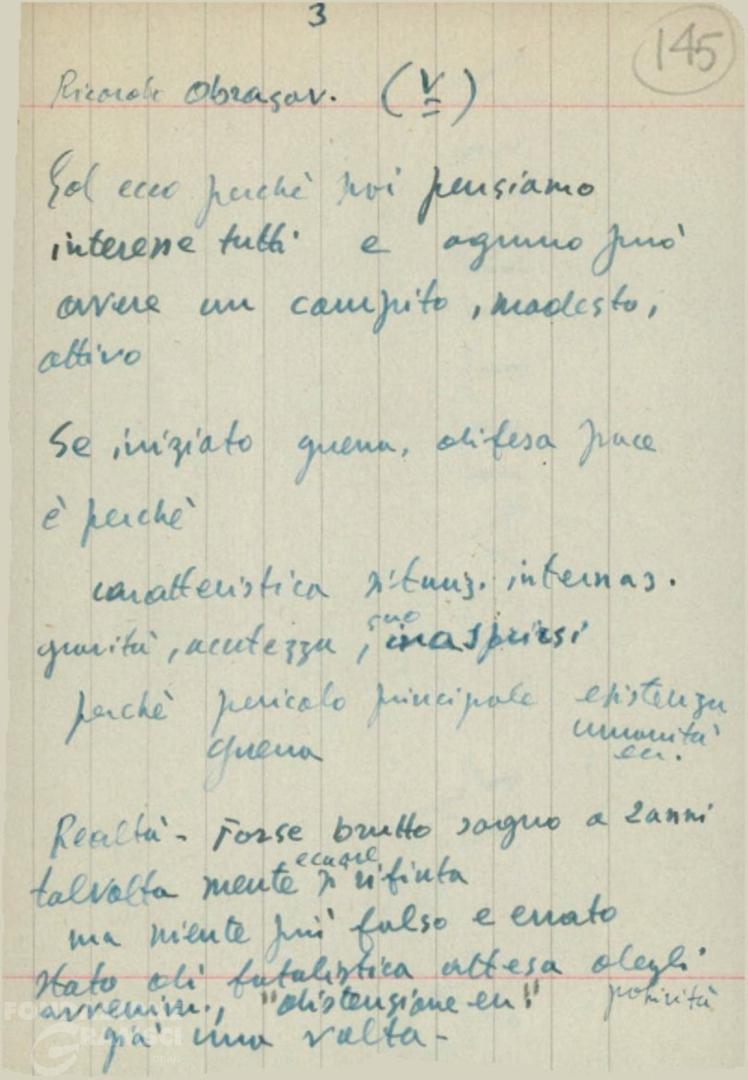 3
145
Ricordi Obrasov. (V)
Ed ecco perchè noi pensiamo
interesse tutti e ognuno può
avere un compito, modesto,
attivo
Se iniziato guerra, difesa pace
è perchè
caratteristica situaz. internaz.
gravità, acutezza, suo inasprirsi
perchè pericolo principale esistenza
guerra umanità
ecc.
Realtà - Forse brutto sogno a 2 anni
talvolta mente e cuore si rifiuta
ma niente più falso e errato
stato di fatalistica attesa degli
avvenim., "distensione ecc." passività
già una volta -